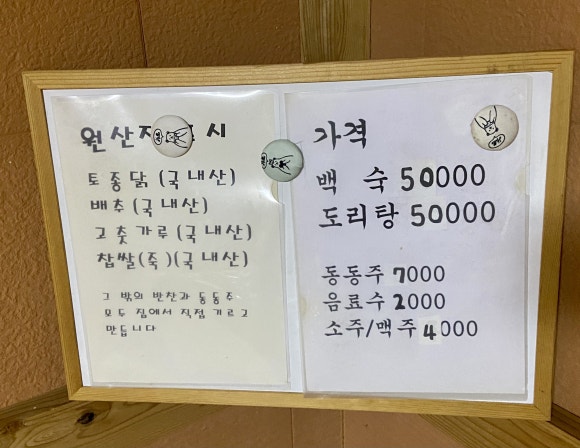 원산지 표시
토종닭 (국내산)
배추 (국내산)
고춧가루 (국내산)
찹쌀(죽)(국내산)
그 밖의 반찬과 동동주
모두 집에서 직접 기르고
만듭니다
가격
백 숙 50000
도리탕 50000
동동주 7000
음료수 2000
소주/맥주 4000